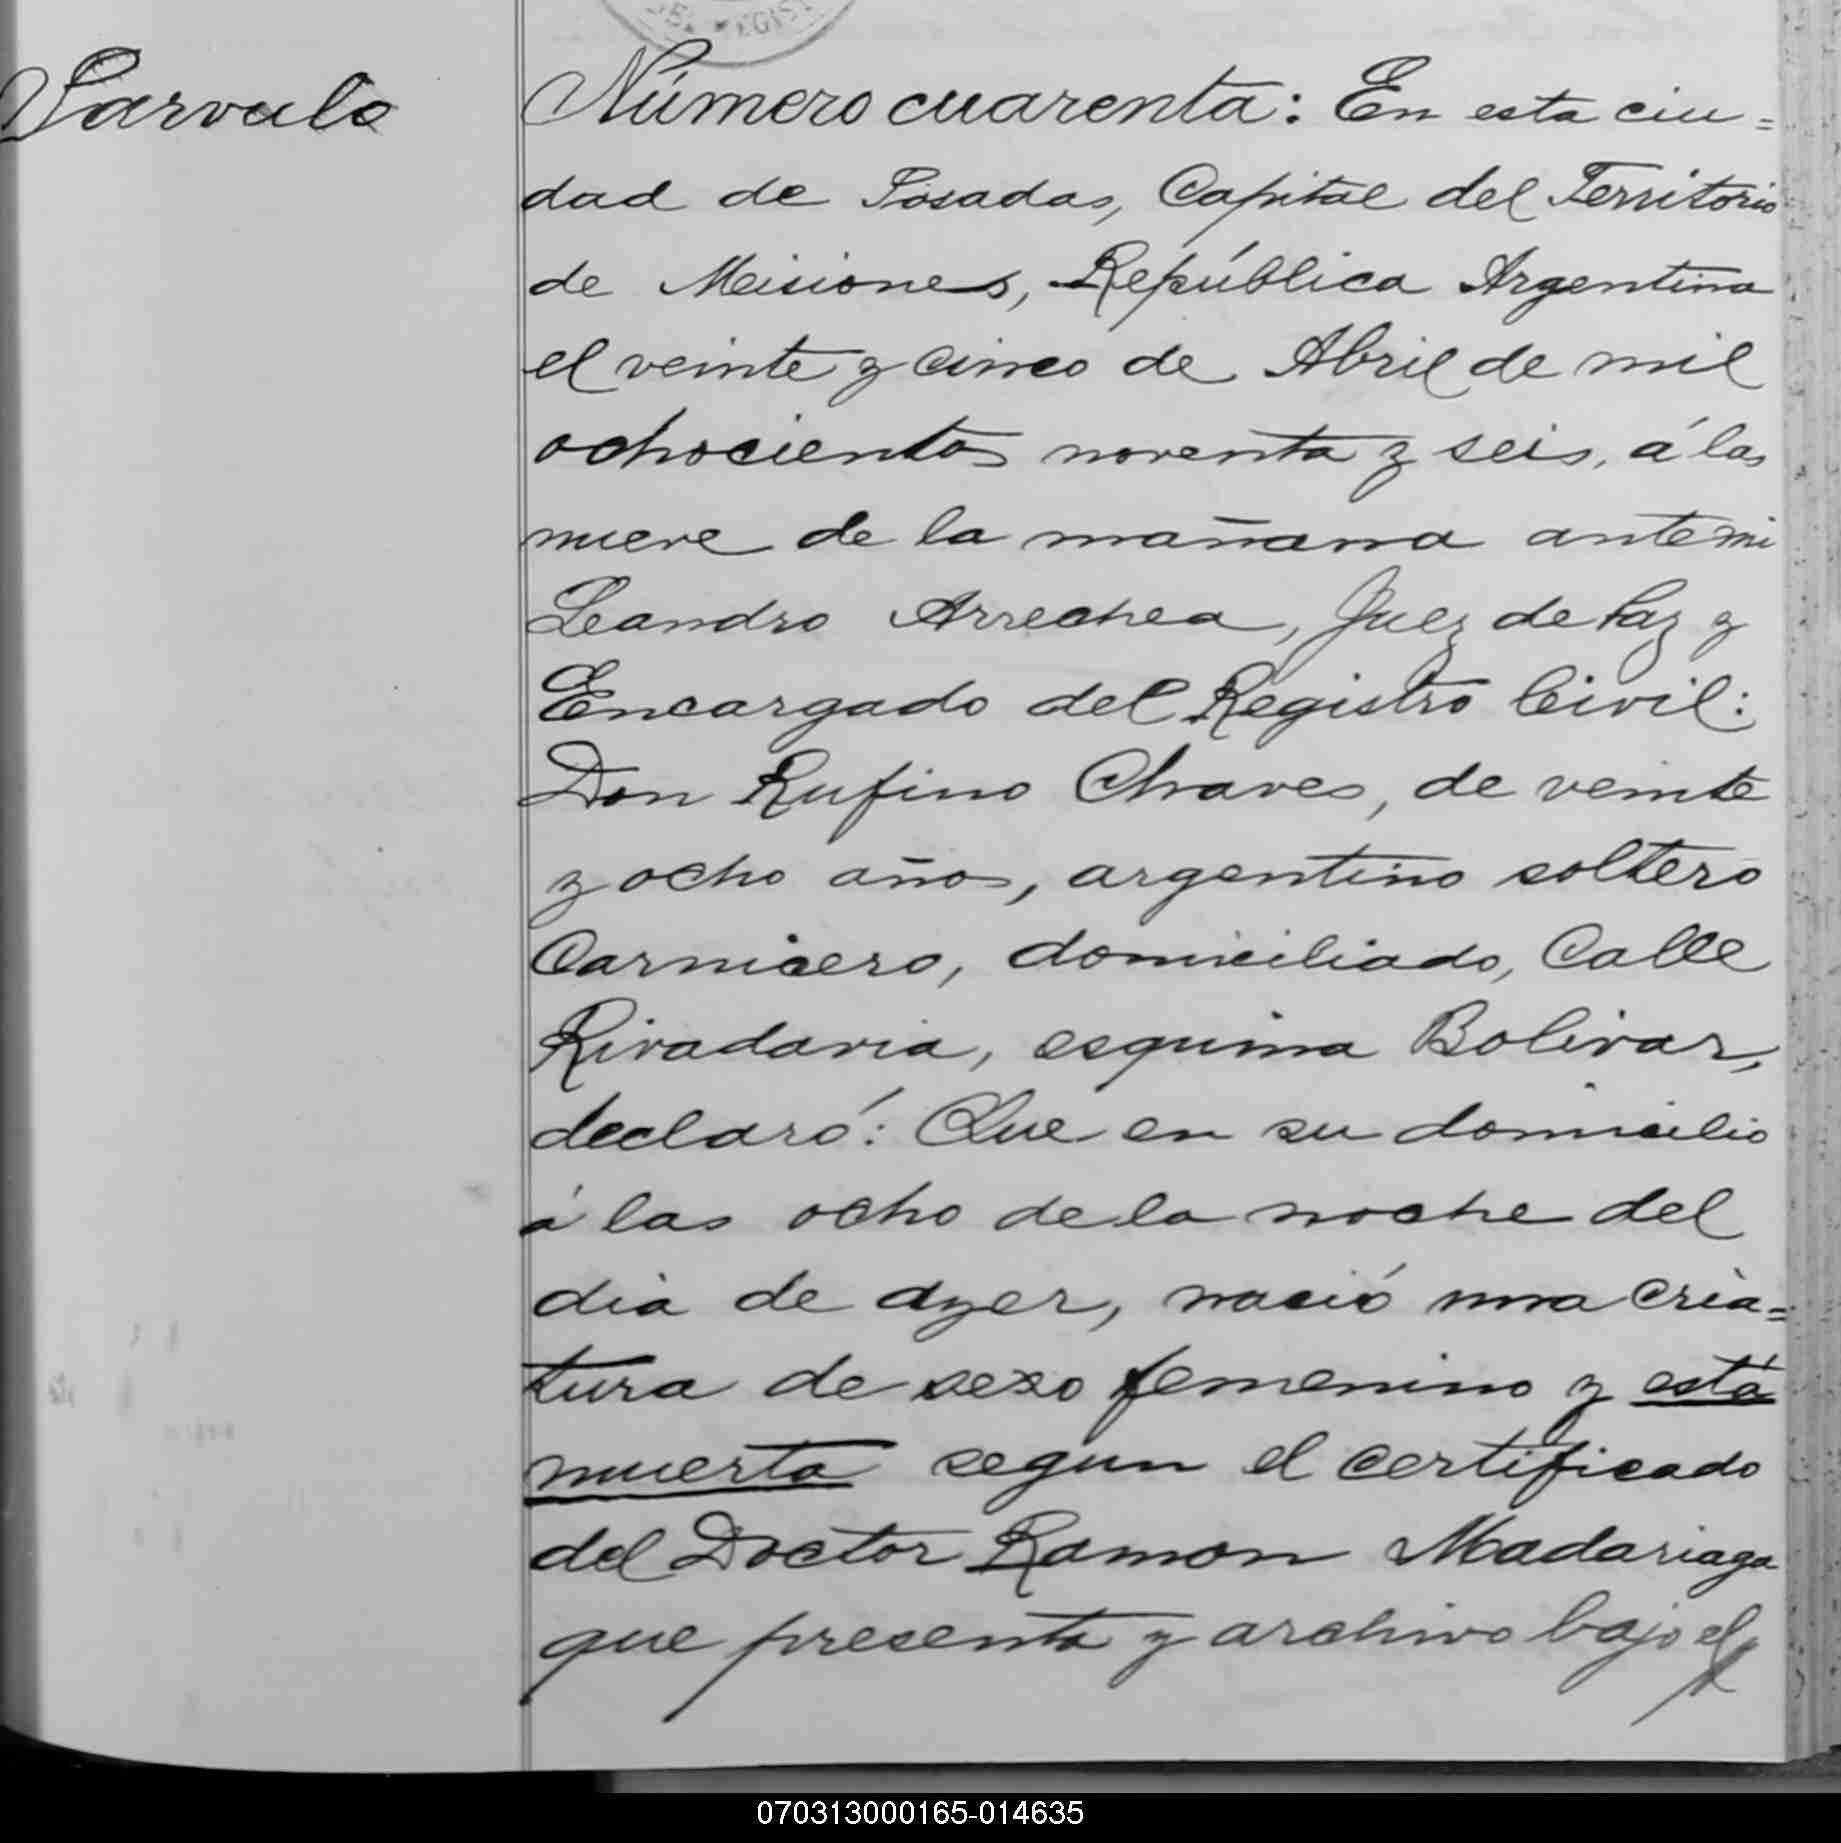 Parvulo
Número cuarenta: En esta ciu=
dad de Posadas, Capital del Territorio
de Misiones, República Argentina
el veinte y cinco de Abril de mil
ochocientos noventa y seis, á las
nueve de la mañana ante mi
Leandro Arrechea, Juez de Paz y
Encargado del Registro Civil:
Don Rufino Chaves, de veinte
y ocho años, argentino soltero
Carnicero, domiciliado, Calle
Rivadavia, esquina Bolivar,
declaró: Que en su domicilio
á las ocho de la noche del
dia de ayer, nació una cria=
tura de sexo femenino y está
muerta segun el certificado
del Doctor Ramon Madariaga
que presenta y archivo bajo el
070313000165-014635